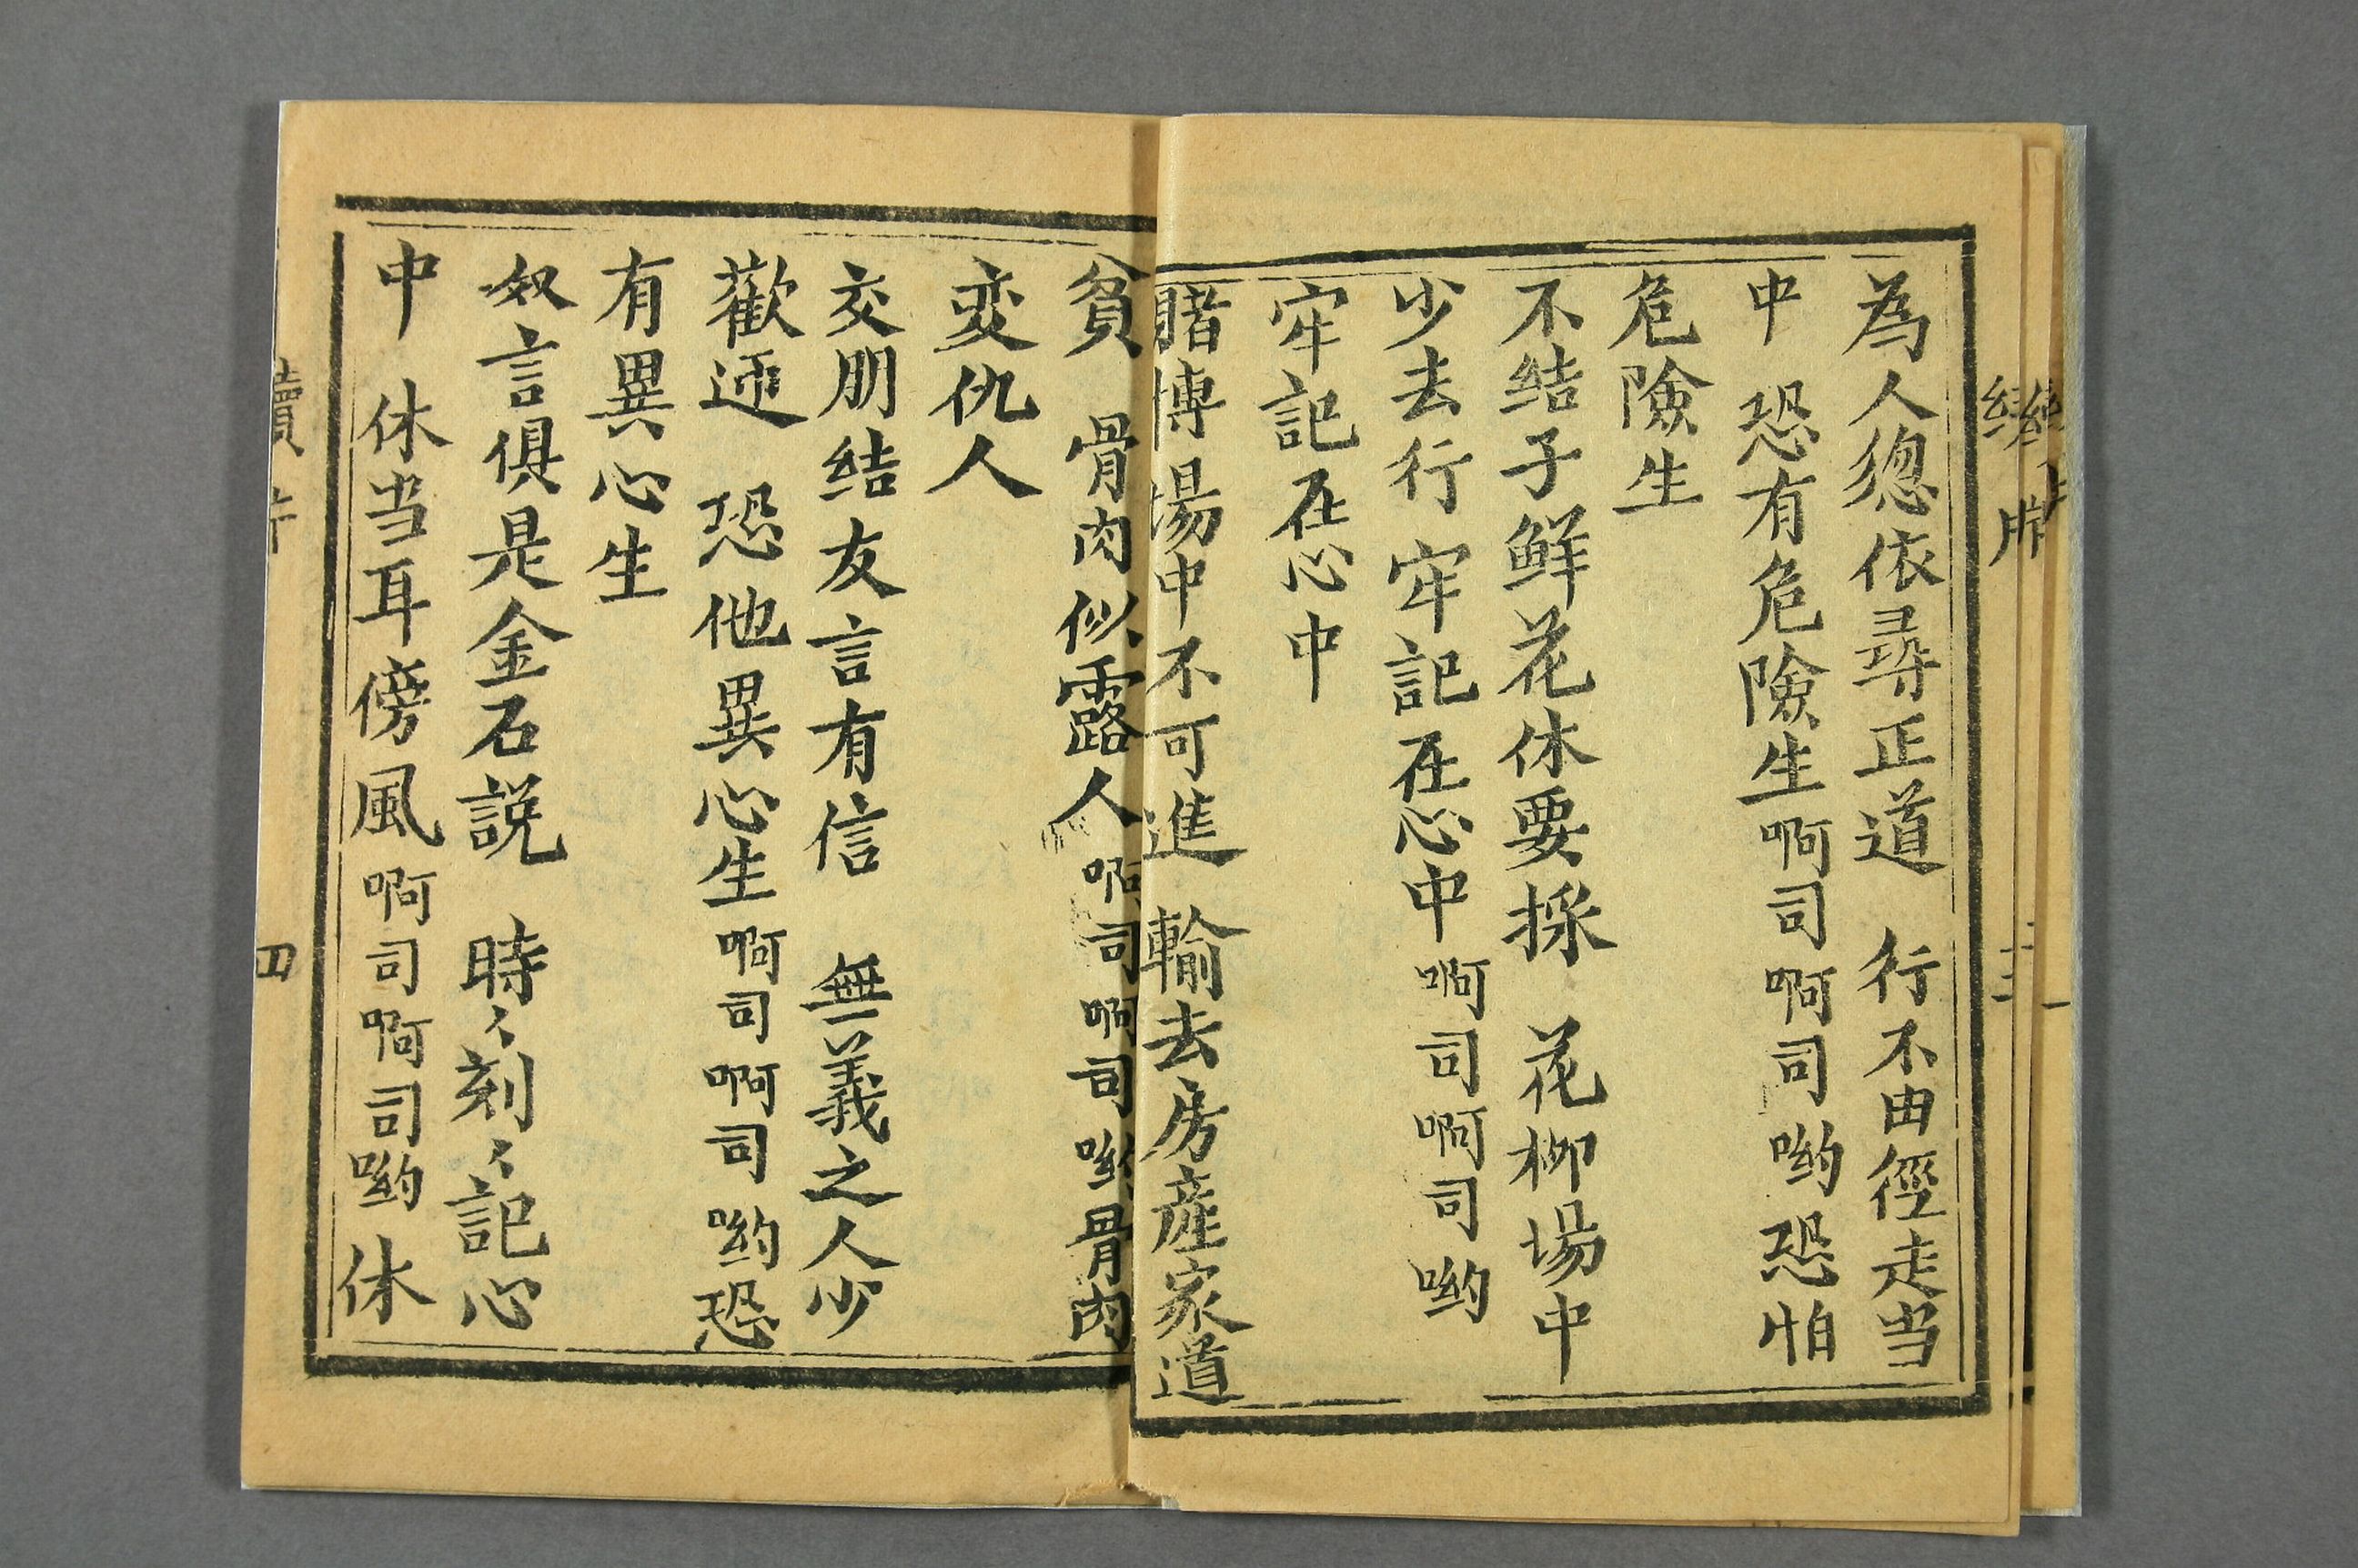 為人總依尋正道　行不由徑走当
中　恐有危險生啊司啊司喲恐怕
危險生
不结子鲜花休要採　花柳場中
少去行　牢記在心中啊司啊司喲
牢記在心中
賭博場中不可進　輸去房産家道
貧　骨肉似露人啊司啊司喲骨肉
変仇人
交朋结友言有信　無義之人少
歡迊　恐他異心生啊司啊司喲恐
有異心生
奴言俱是金石説　時〻刻〻記心
中　休当耳傍風啊司啊司喲休
四